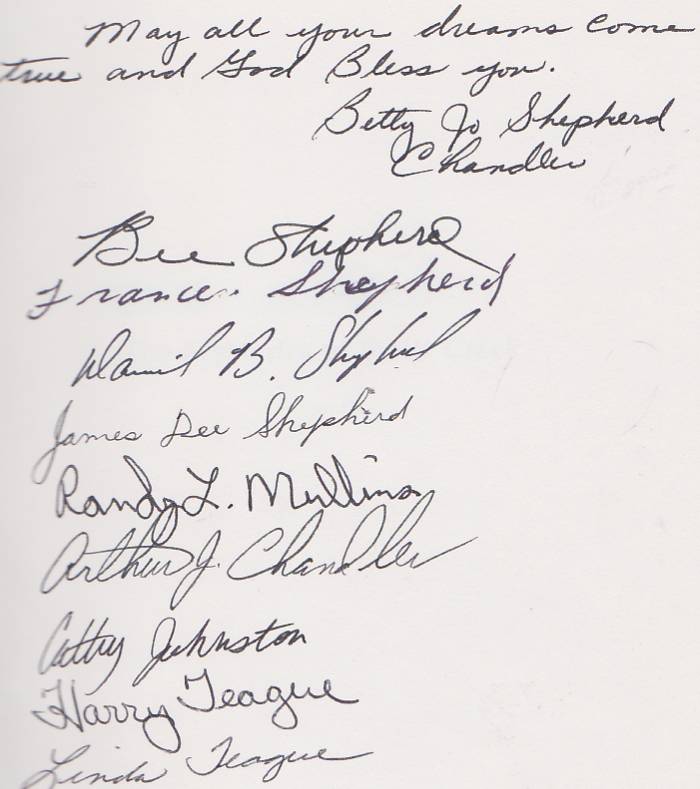 May all your dreams come
true and God Bless you.
Betty Jo Shepherd
Chandler
Bee Shepherd
Frances Shepherd
Daniel B. Shepherd
James Dee Shepherd
Randy L. Mullins
Arthur J. Chandler
Cathy Johnston
Harry Teague
Linda Teague